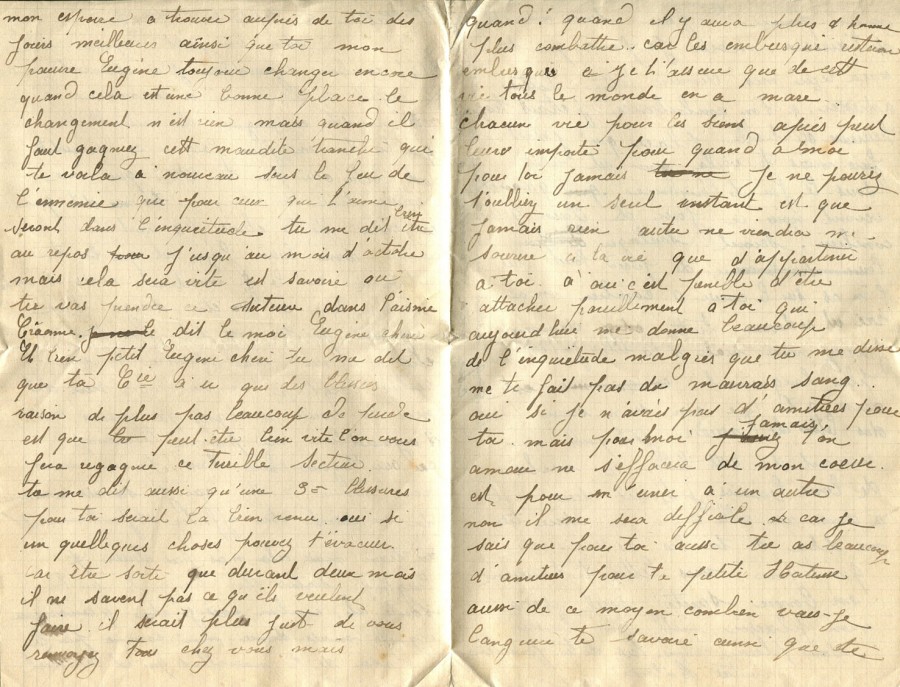 mon espoire a trouver auprès de toi des
jours meilleurs ainsi que toi mon
pauvre Eugène toujours changer encore
quand cela est une bonne place le
changement n'est rien mais quand il
faut gagnez cett maudite tranché qui
te voila a nouveau sous le feu de
l'ennemie que pour ceux qui l'aime
seront dans l'inquietude tu me dit bien être
au repos j'usqu'au mois d'octobre
mais cela sera vite est savoire ou
tu vas prendre ce secteur dans l'aisne
dit le moi Eugène cheri
Et bien petit Eugène cheri tu me dit
que ta Cie a u que des blessés
raison de plus pas beaucoup de perde
est que peut-etre bien vite l'on vous
fera regagner ce terrible secteur.
tu me dit aussi qu'une 3e blessures
pour toi serait la bien venu oui si
un quellegues choses pouvez t'évacuer.
car être sorte que durant deux mois
il ne savent pas ce qu'ils veulent
faire. il serait plus just de vous
renvoyez tous chez vous mais
quand! quand il y aura plus d homme
plus combattre. car les embusqué
embusqués a je t'asseure que de cett
vie tous le monde en a mare.
Chacun vie pour les siens après peut
leurs importe pour quand a moi
pour toi jamais je ne pourez
t'oubliez un seul instant est que
jamais rien autre ne viendra me
sourire a la vie que d'appartenir
a toi. à qu'c'est penible d'être
attacher pareillement à toi qui
aujourd'hui me donne beaucoup
de l'inquiètude malgrés que tu me disse
ne te fait pas du mauvais sang..
oui si je n'avais pas d'amitiées pour
toi. mais pour moi jamais ton
amour ne s'effacera de mon coeur.
est pour m'unir à un autre
non il me sera difficile. car je
sais que pour toi aussi tu as beaucoup
d'amitiées pour te petite Hortense
aussi de ce moyen combien vais-je
languir te savoire aussi que de